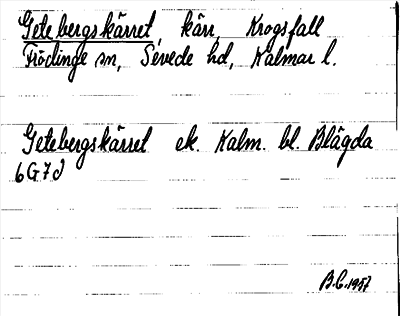 Getebergskärret, kärr, Krogsfall
Frödinge sn, Sevede hd, Kalmar l.
Getebergskärret ek. Kalm. bl. Blågda
6G7d
B.C. 1957